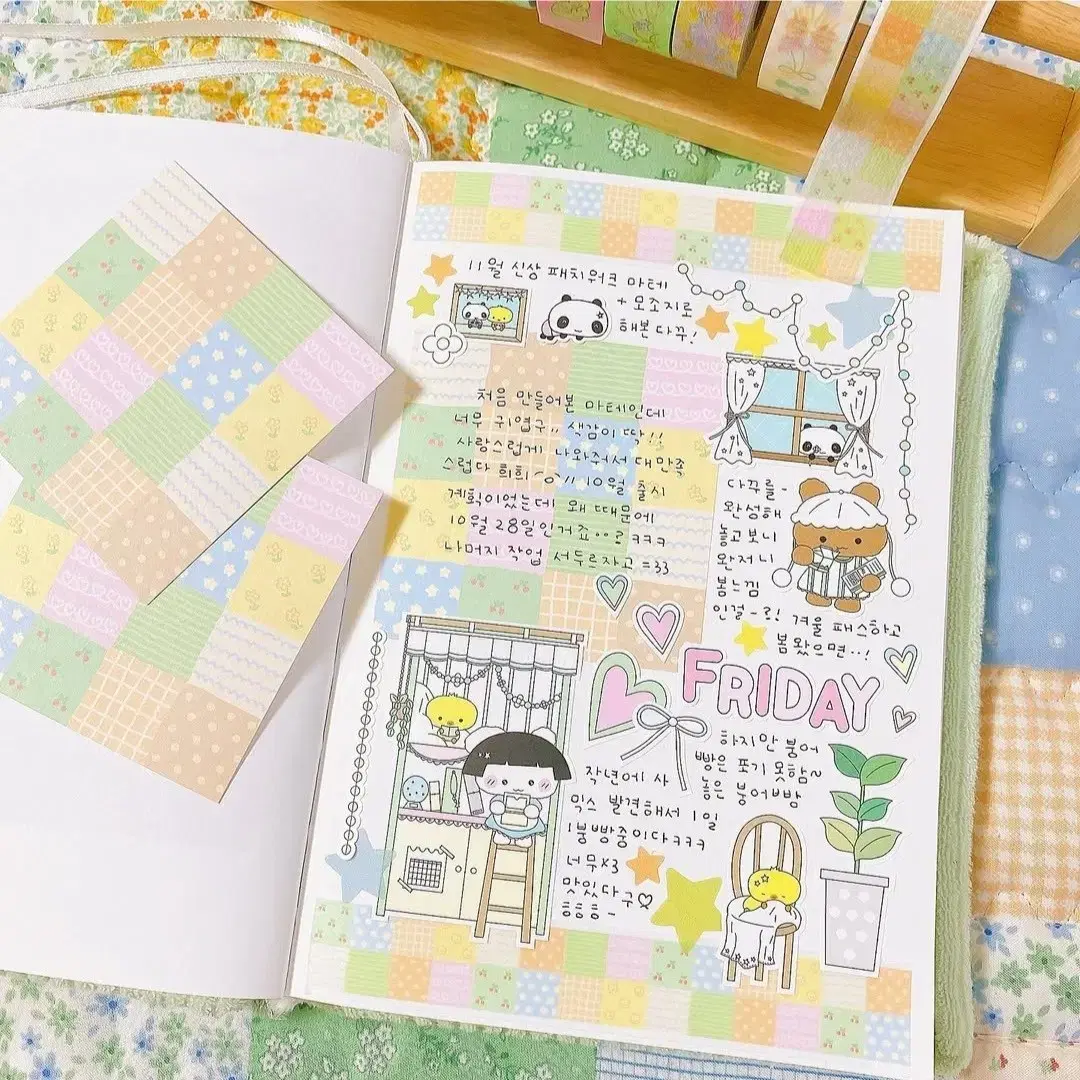 11월 신상 패치워크 마테
+ 모조지로
해본 다꾸!
처음 만들어본 마테인데
너무 귀엽구〃 색감이 딱!!
사랑스럽게 나와줘서 대만족
스럽다 희희 10월 출시
계획이었는데 왜 때문에
10월 28일인거죠..? ㅋㅋㅋ
나머지 작업 서두르자고 =33
다꾸를-
완성해
놓고보니
완저니
봄느낌
인걸-ㄹ! 겨울 패스하고
봄 왔으면..!
FRIDAY
하지만 붕어
빵은 포기 못함~
작년에 사
놓은 붕어빵
믹스 발견해서 1일
1붕빵중이다ㅋㅋㅋ
너무x3
맛있다구♡